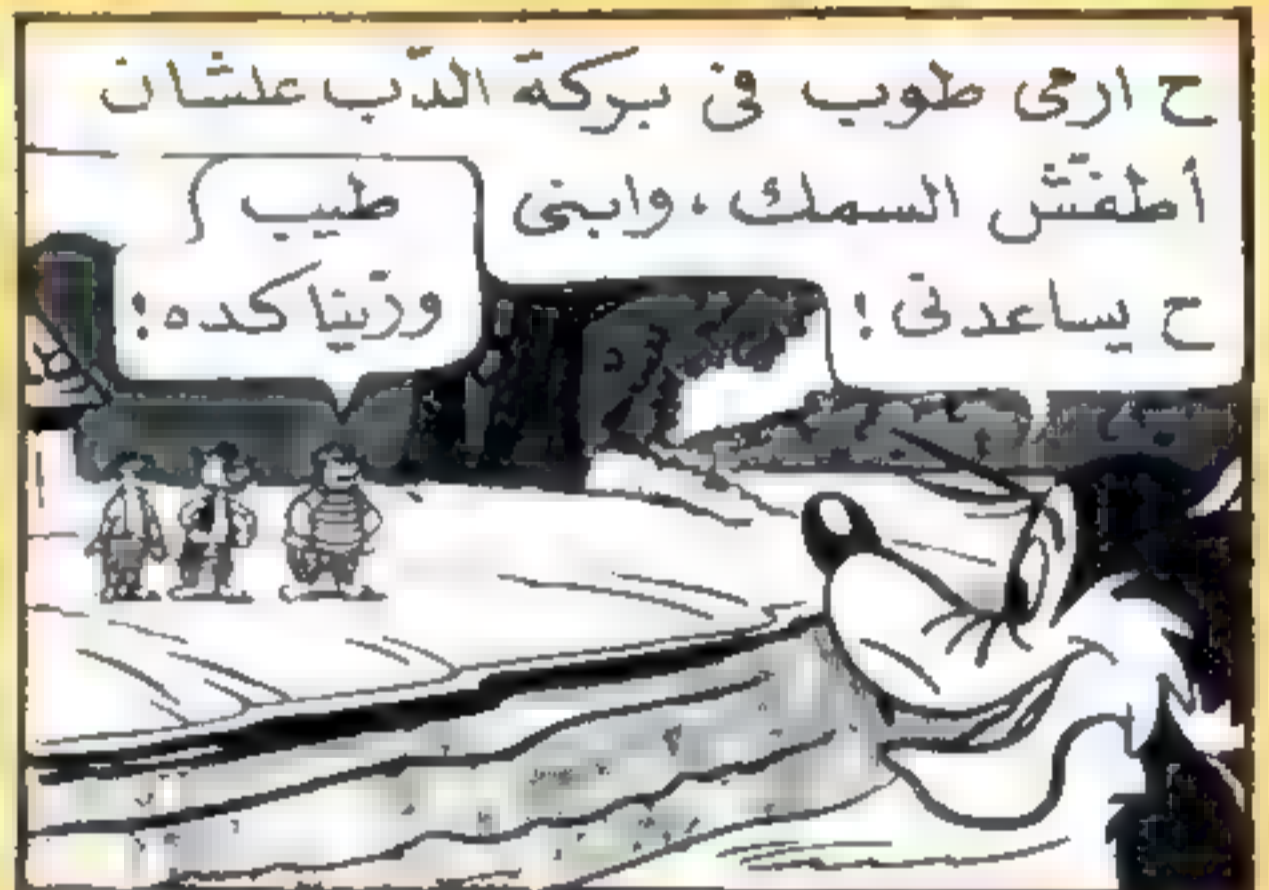 ح ارمى طوب فى بركة الدّب علشان
أطفّش السمك ، وابنى
ح يساعدنى !
طيب
ورّينا كده !